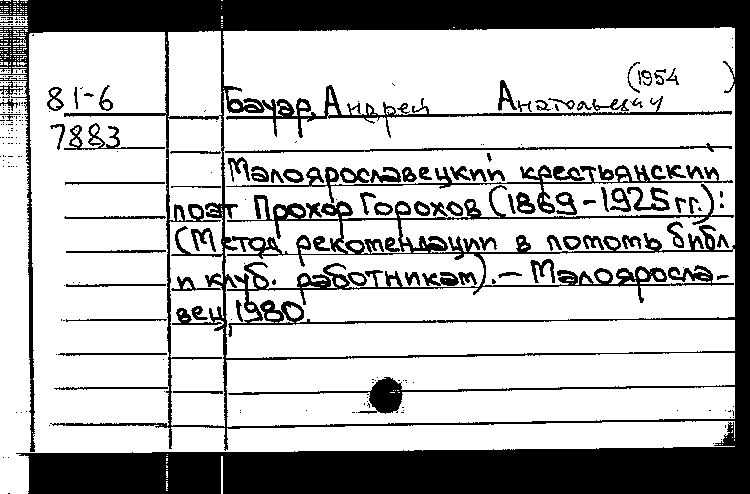 (1954 )
81-6 Бауэр, Андрей Анатольевич
7883
Малоярославецкий крестьянский
поэт Прохор Горохов (1869-1925 гг.):
(Метод. рекомендации в помощь библ.
и клуб. работникам). - Малояросла-
вец, 1980.